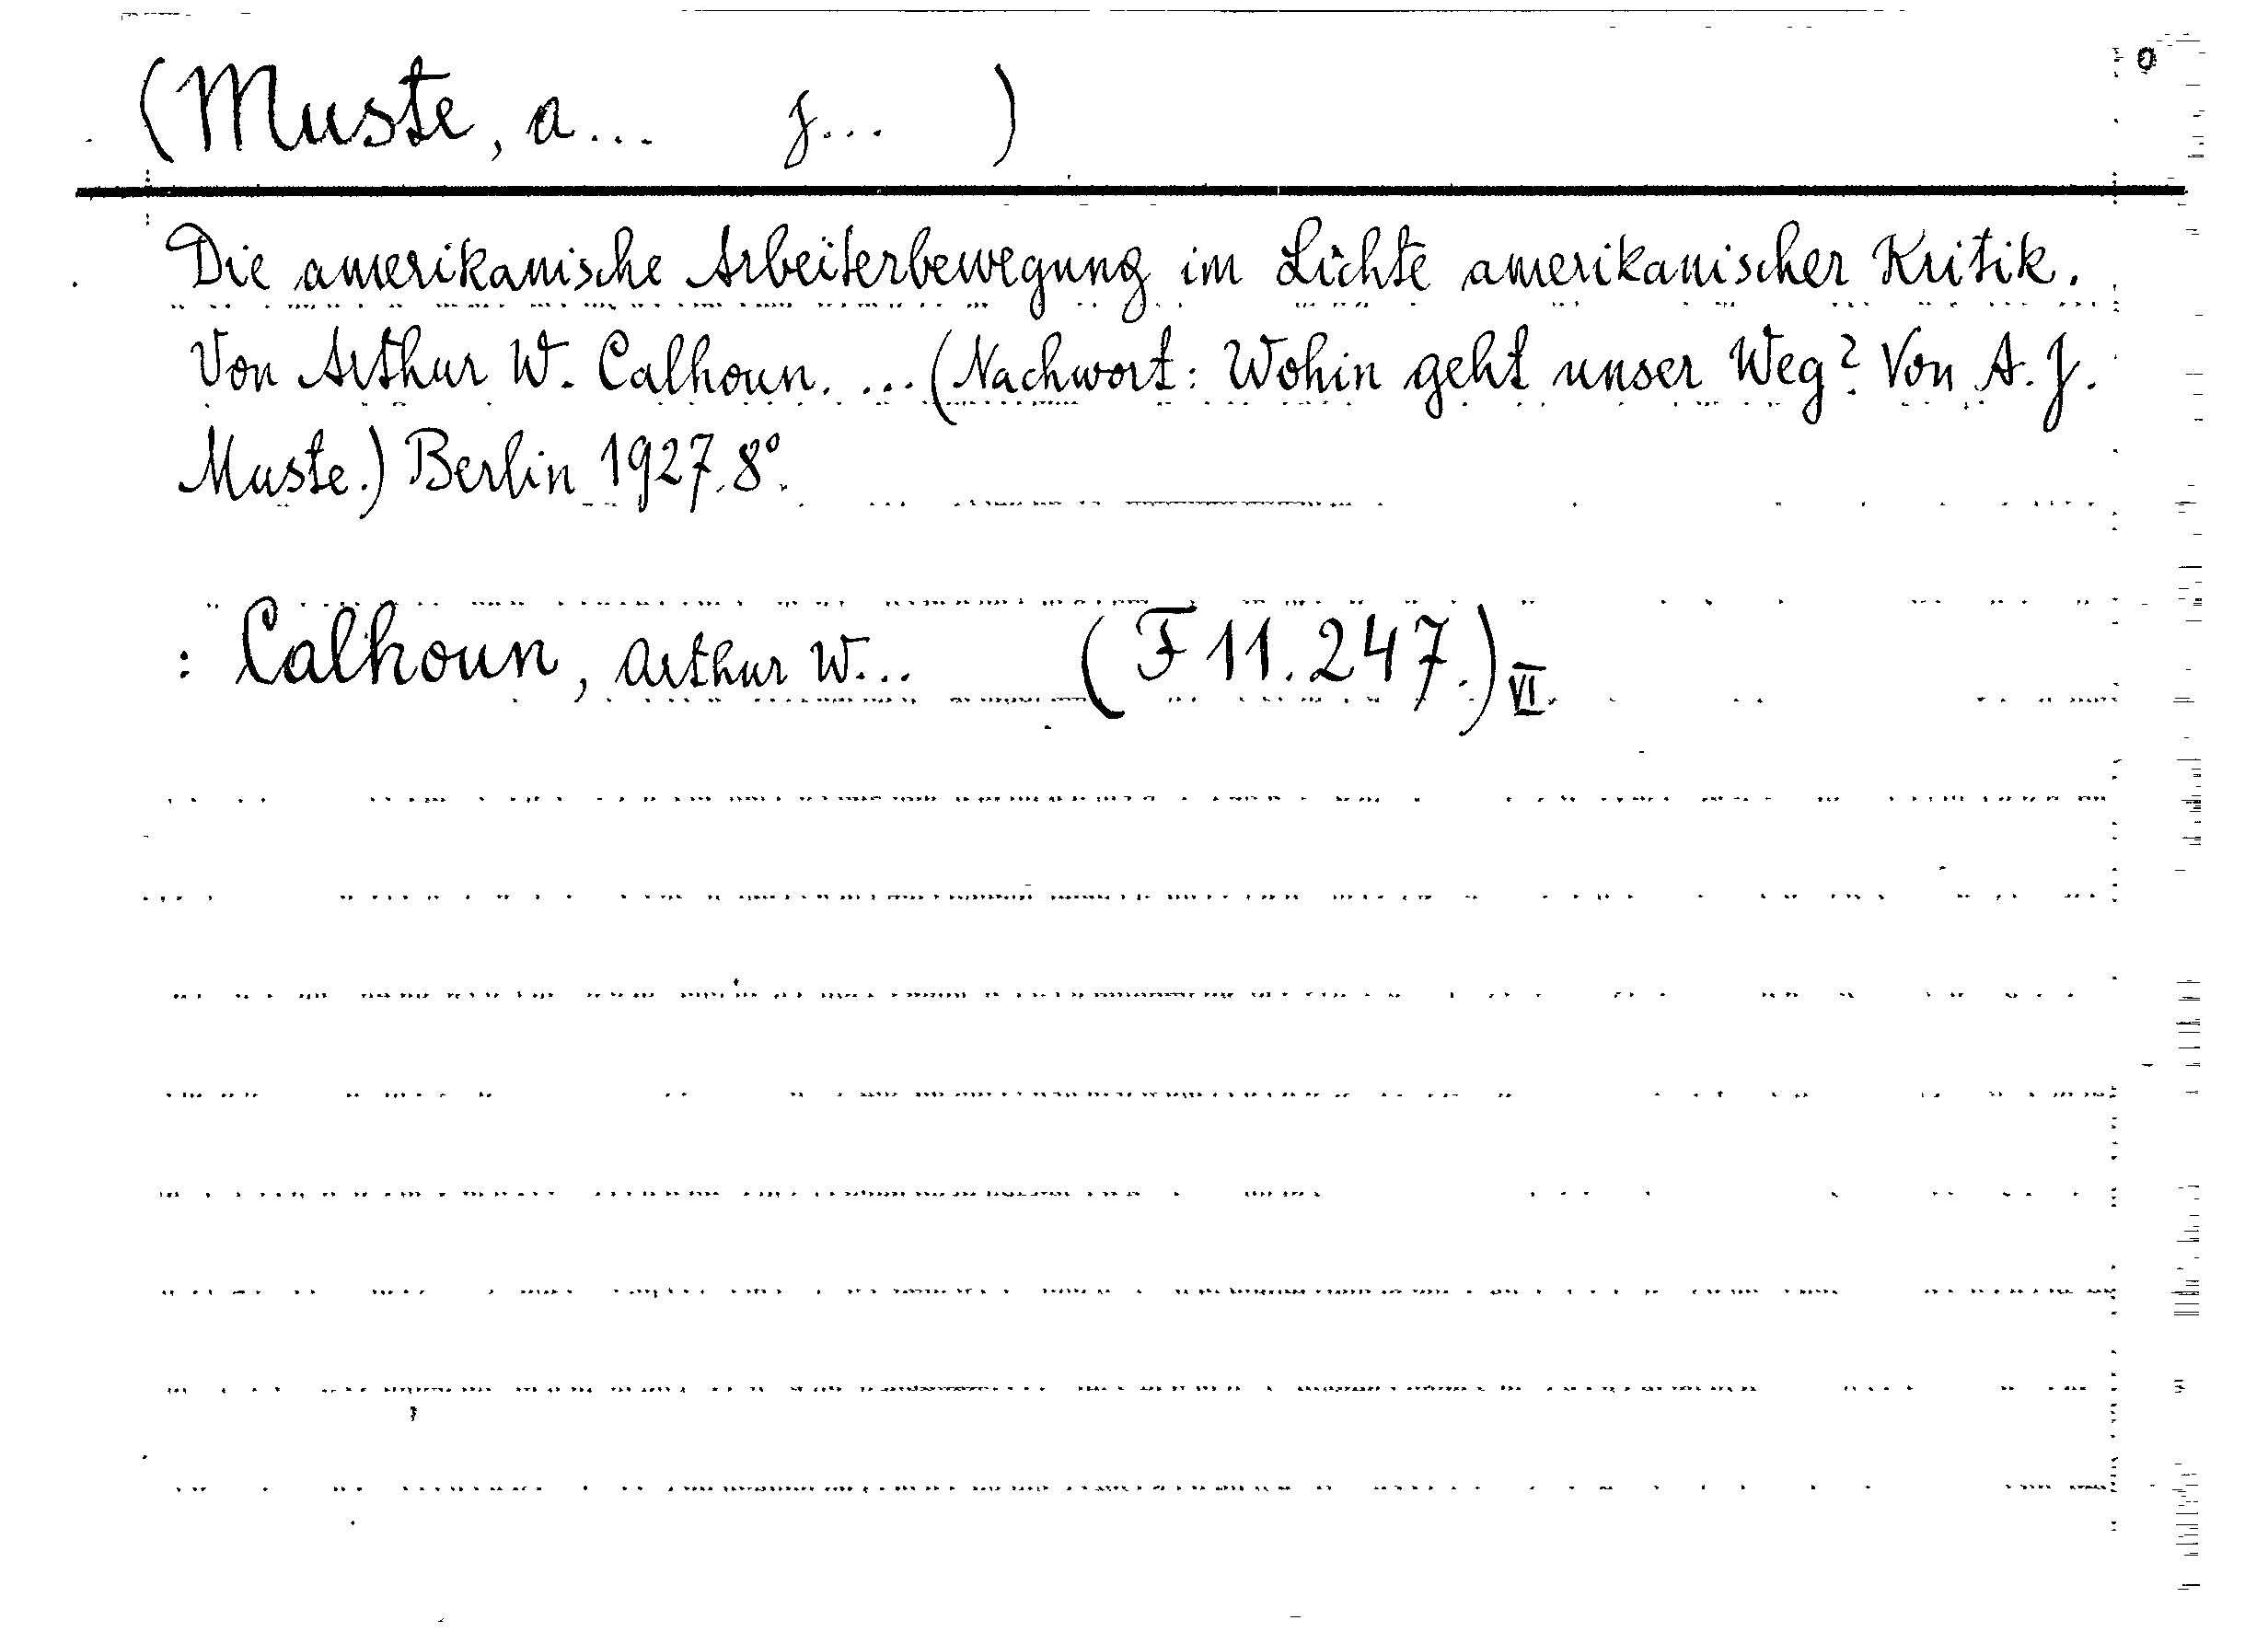 (Muste, A... J... )
Die amerikanische Arbeiterbewegung im Lichte amerikanischer Kritik.
Von Arthur W. Calhoun. ... (Nachwort: Wohin geht unser Weg? Von A. J.
Muste.) Berlin 1927. 8°.
: Calhoun, Arthur W... (F 11.247.) VI.